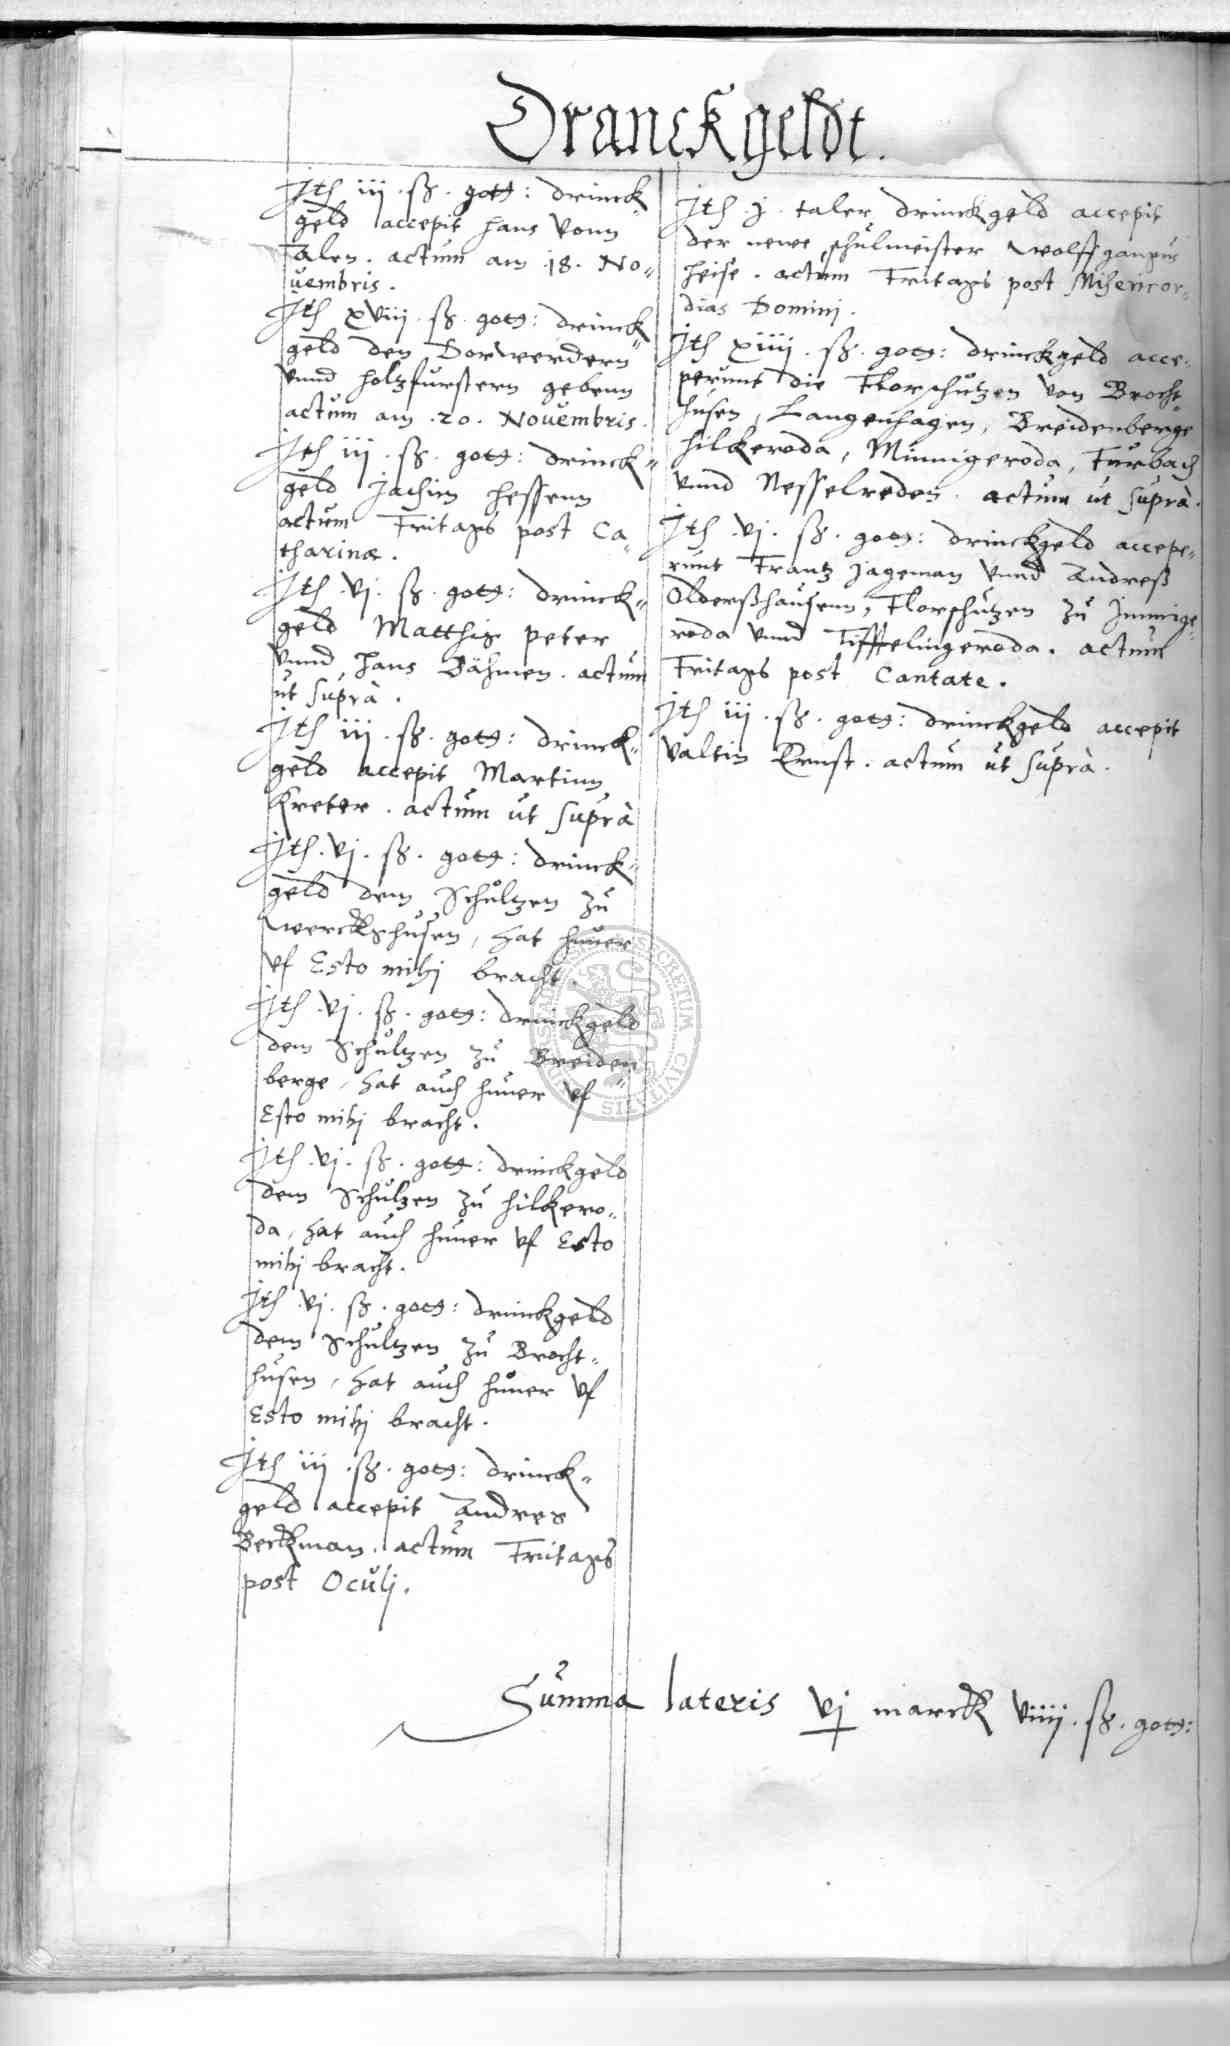 Dranckgeldt.
Ith iij . ß . gotg : drinck„
geld accepit Hans vonn
Alen . actum am .18. No„
uembris .
Ith xviij . ß . gotg : drinck„
geld den Dorwerdern
vnnd Holtzfurstern gebenn
actum am .20. Nouembris .
Ith iij . ß . gotg : drinck„
geld Jachim Hessenn
actum Fritags post Ca„
tharinæ .
Ith .vj. ß . gotg : drinck„
geld Matthis Peter
vnnd Hans Dähmen . actum
ut suprà .
Ith iij . ß . gotg : drinck„
geld accepit Martinn
Kreter . actum ut suprà
Ith .vj. ß . gotg : drinck„
geld dem Schultzen zu
Werckshusen, hat huner
vf Esto mihj bracht
Ith .vj. ß . gotg : drinckgeld
dem Schultzen zu Breiden„
berge, hat auch huner vf
Esto mihj bracht .
Ith .vj. ß . gotg : drinckgeld
dem Schultzen zu Hilkero„
da, hat auch huner vf Esto
mihj bracht .
Ith .vj. ß . gotg : drinckgeld
dem Schultzen zu Brocht„
husen, hat auch huner vf
Esto mihj bracht .
Ith iij . ß . gotg : drinck„
geld accepit Andres
Beckman . actum Fritags
post Oculj .
Ith .j. taler drinckgeld accepit
der newe schulmeister Wolffgangus
Heise . actum Fritags post Misericor„
dias Dominj .
Ith xiiij . ß . gotg : drinckgeld acce„
perunt die Florschutzen von Brocht„
husen, Langenhagen, Breidenberge
Hilkeroda, Minnigeroda, Furbach
vnnd Nesselreden . actum ut suprà .
Ith .vj. ß . gotg : drinckgeld accepe„
runt Frantz Jageman vnnd Andreß
Olderßhausenn, Florschutzen zu Immige„
roda vnnd Tifftelingeroda . actum
Fritags post Cantate .
Ith iij . ß . gotg : drinckgeld accepit
Valtin Ernst . actum ut suprà .
Summa lateris vj marck viiij . ß . gotg :
SECRETUM CIVITATIS